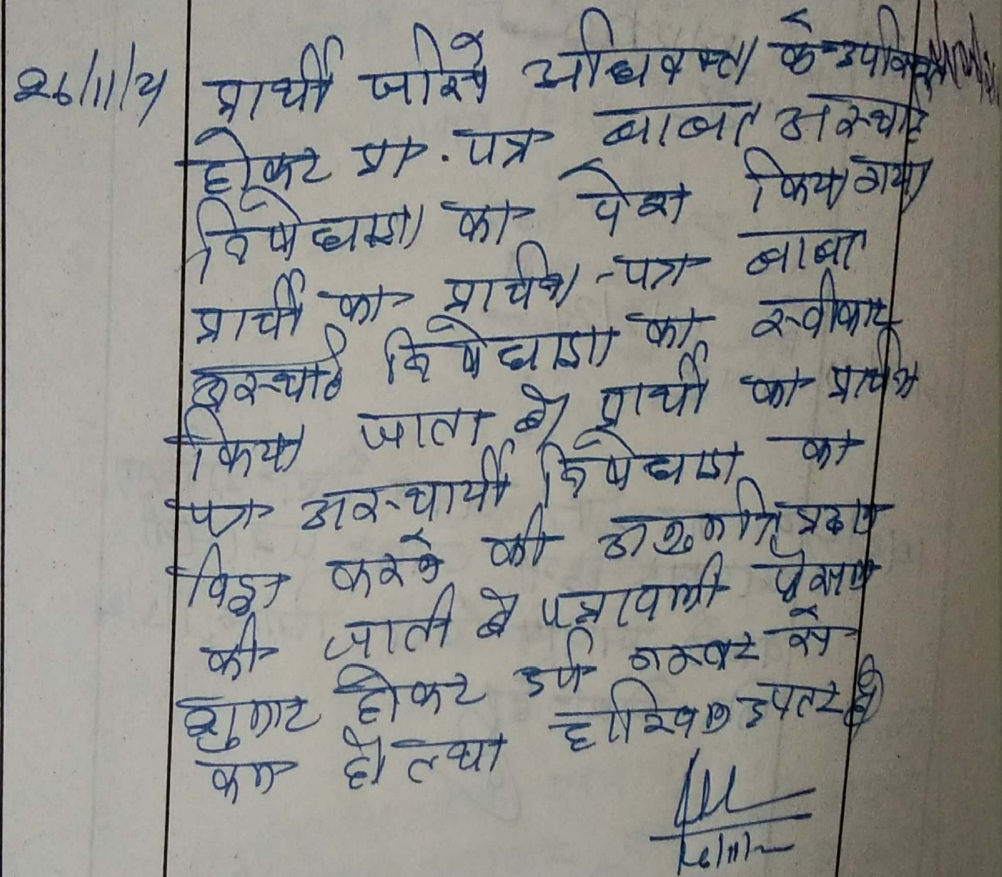 26/11/21 प्रार्थी जरिये अधिवक्ता के उपस्थित
होकर प्रा. पत्र बाबत अस्थाई
निषेधाज्ञा का पेश किया गया
प्रार्थी का प्रार्थना पत्र बाबत
अस्थाई निषेधाज्ञा का स्वीकार
किया जाता है प्रार्थी को प्रार्थना
पत्र अस्थायी निषेधाज्ञा का
विड्रा करने की अनुमति प्रदान
की जाती है पत्रावली फैसल
शुमार होकर दर्ज नम्बर से
कम हो तथा दाखिल दफ्तर हो